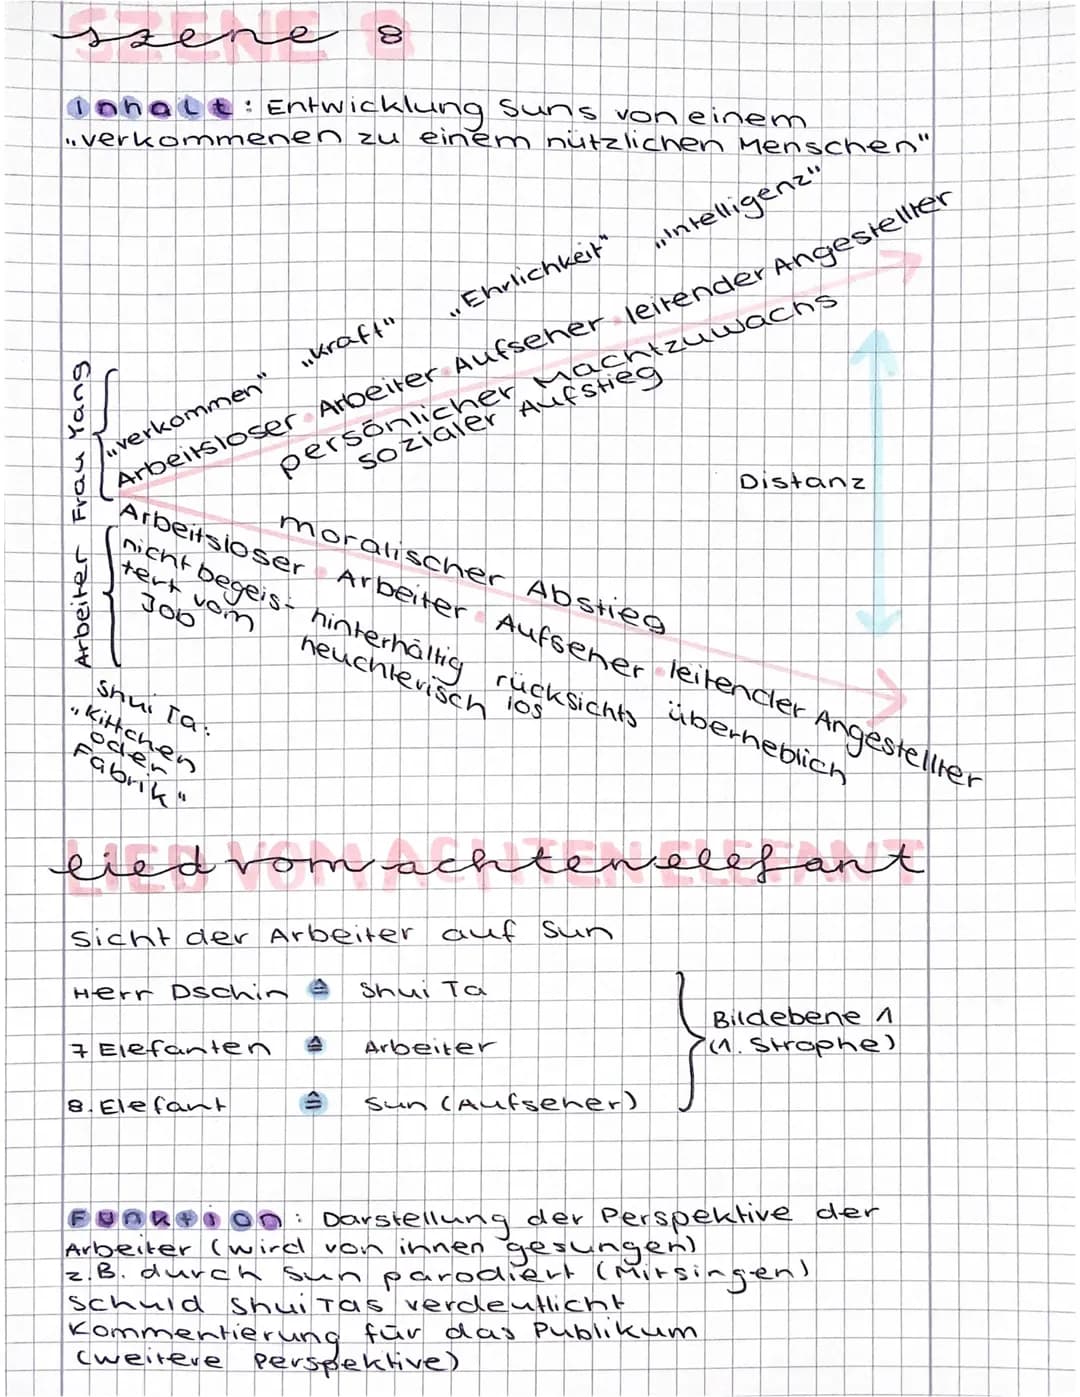 szene 8
SZENE 8
Inhalt: Entwicklung Suns von einem
„verkommenen zu einem nützlichen Menschen"
„verkommen" „kraft" „Ehrlichkeit" „Intelligenz"
Arbeitsloser Arbeiter Aufseher leitender Angestellter
persönlicher Machtzuwachs
sozialer Aufstieg
Frau Yang
Distanz
moralischer Abstieg
Arbeitsloser Arbeiter Aufseher leitender Angestellter
nicht begeis-
tert vom
Job
hinterhältig
heuchlerisch
rücksichts
los
überheblich
Arbeiter
Shui Ta:
„Kittchen
oder
Fabrik"
lied vom achten elefant
LIED VOM ACHTEN ELEFANT
Sicht der Arbeiter auf Sun
Herr Dschin ≙ Shui Ta
7 Elefanten ≙ Arbeiter
8. Elefant ≙ Sun (Aufseher)
Bildebene 1
(1. Strophe)
Funktion: Darstellung der Perspektive der
Arbeiter (wird von ihnen gesungen)
z.B. durch Sun parodiert (Mitsingen)
Schuld Shui Tas verdeutlicht
Kommentierung für das Publikum
(weitere Perspektive)